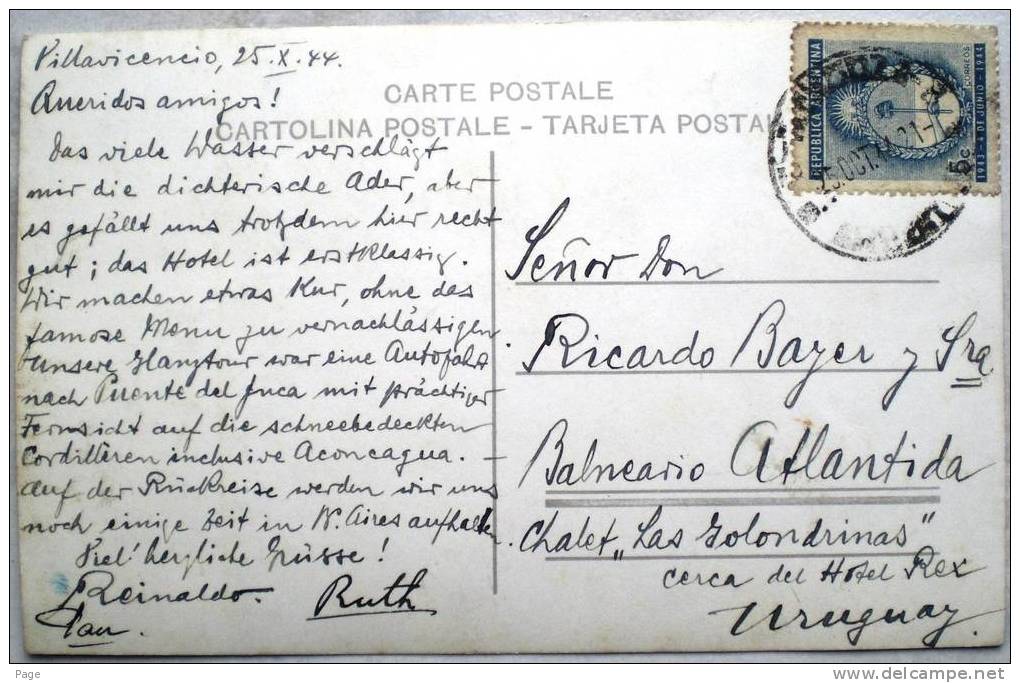 Villavicencio, 25.X.44.
Queridos amigos!
CARTE POSTALE
CARTOLINA POSTALE - TARJETA POSTAL
Das viele Wasser verschlägt
mir die dichterische Ader, aber
es gefällt uns trotzdem hier recht
gut; das Hotel ist erstklassig.
Wir machen etwas Kur, ohne das
famose Menu zu vernachlässigen
Unsere Glanztour war eine Autofahrt
nach Puente del Inca mit prächtiger
Fernsicht auf die schneebedeckten
Cordilleren inclusive Aconcagua. –
Auf der Rückreise werden wir uns
noch einige Zeit in B. Aires aufhalten.
Viel' herzliche Grüsse!
Reinaldo. Ruth
REPUBLICA ARGENTINA
CORREOS
5c
1943 - 4 DE JUNIO - 1944
25.OCT.
Señor Don
Ricardo Bayer y Sra
Balneario Atlantida
Chalet „Las Golondrinas"
cerca del Hotel Rex
Uruguay.
Page
delcampe.net